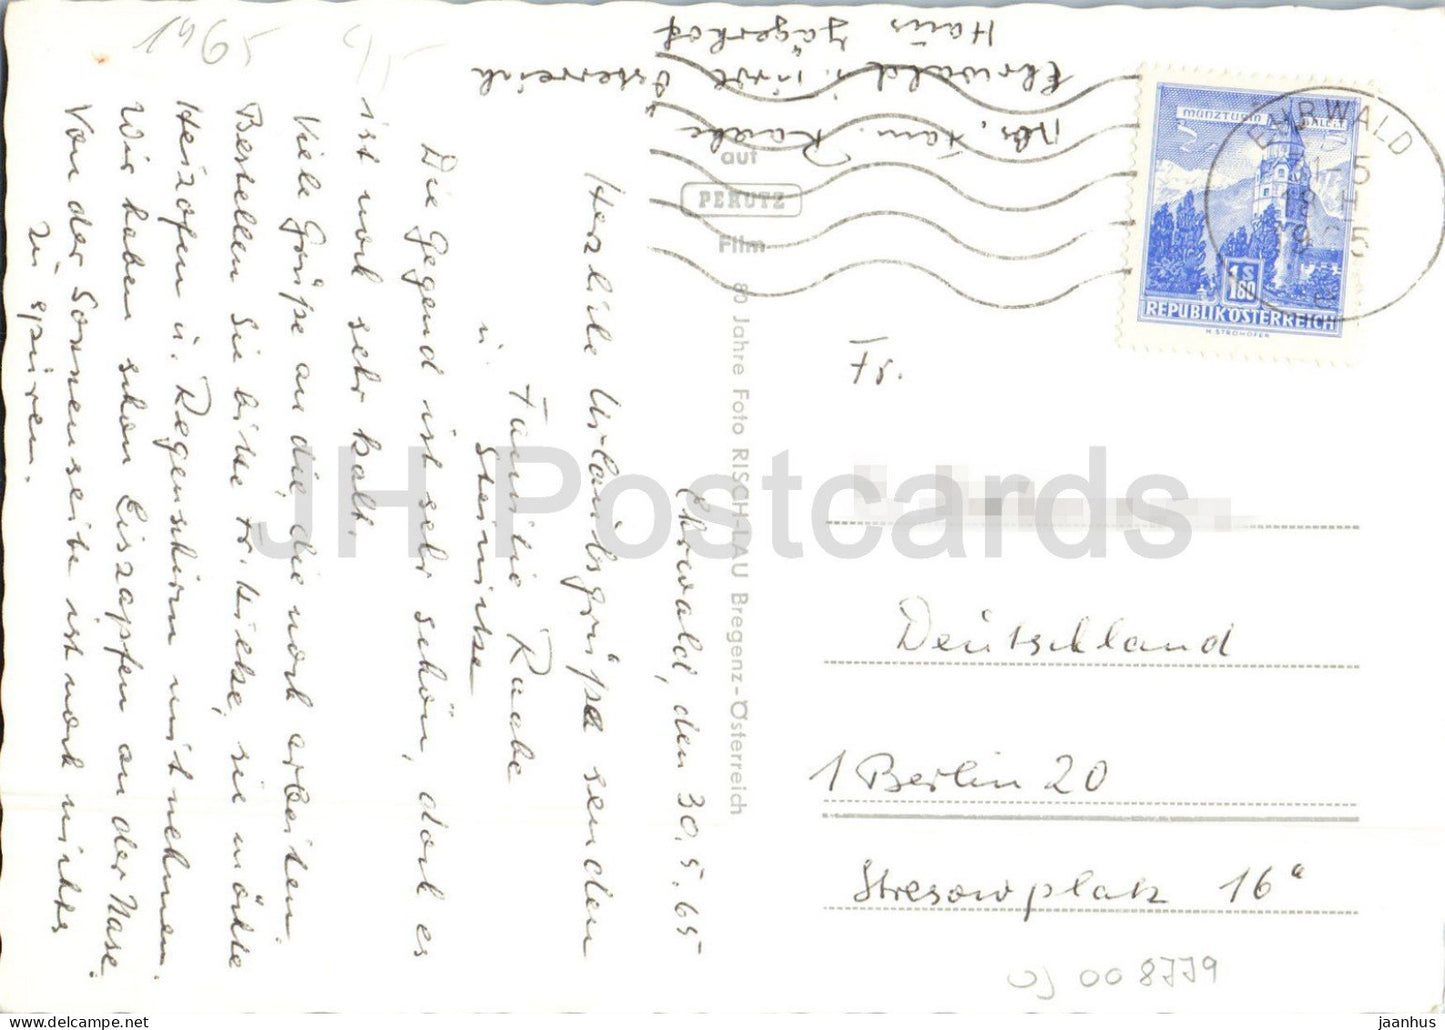 1965
Ehrwald, den 30.5.65
Herzliche Urlaubsgrüße senden
Familie Raabe
u.
Steinitse
Die Gegend ist sehr schön, doch es
ist noch sehr kalt.
Viele Grüße an die, die noch arbeiten.
Bestellen Sie bitte Fr. Hielke, sie möchte
Heizofen u. Regenschirm mitnehmen.
Wir haben schon Eiszapfen an der Nase.
Von der Sonnenseite ist noch nichts
zu spüren.
Abs. Fam. Raabe
Ehrwald i. Tirol Österreich
Haus Jägerhof
auf
PERUTZ
Film
80 Jahre Foto RISCH-LAU Bregenz-Österreich
MÜNZTURM HALL
1 S 80
REPUBLIK ÖSTERREICH
H. STROHOFER
EHRWALD
Fr.
Deutschland
1 Berlin 20
Stresowplatz 16a
JH Postcards
008779
jaanhus - delcampe.net